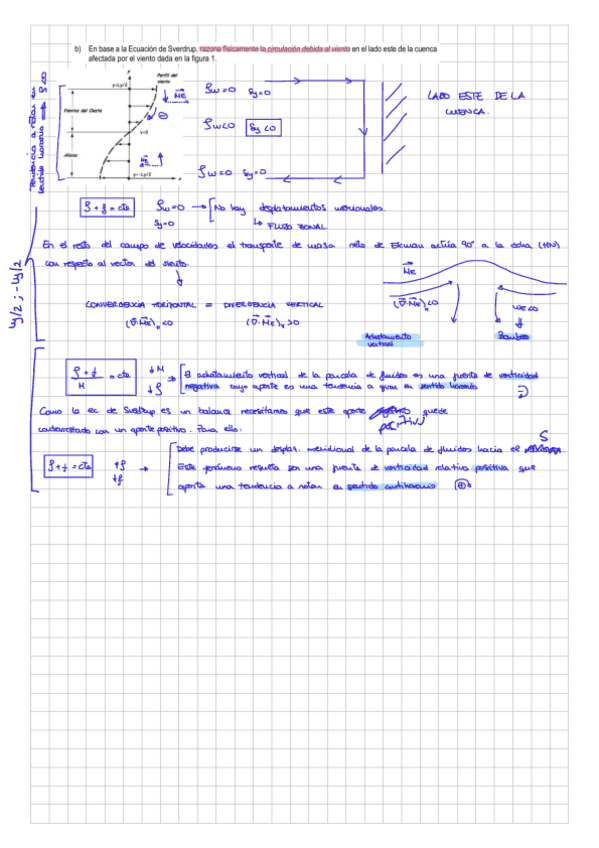 b) En base a la Ecuación de Sverdrup, razona físicamente la circulación debida al viento en el lado este de la cuenca
afectada por el viento dada en la figura 1.
Perfil del
viento
y=+Ly/2
Vientos del Oeste
y=0
Alisios
y=-Ly/2
Tendencia a rotar en
sentido horario → ζ<0
ME
ζw=0 Sy=0
ζw<0 Sy<0
ζw=0 Sy=0
LADO ESTE DE LA
CUENCA.
ζ + f = cte ζw=0 → No hay desplazamientos meridionales.
Sy=0 ↳ FLUJO ZONAL
Ly/2 ; -Ly/2
En el resto del campo de velocidades el transporte de masa neto de Ekman actúa 90° a la dcha (HN)
con respecto al vector del viento.
CONVERGENCIA HORIZONTAL = DIVERGENCIA VERTICAL
(∇·ME)H<0 (∇·ME)v>0
ME
(∇·ME)H<0
WE<0
Achatamiento
vertical
Bombeo
ζ+f/H = cte ↓H ↓ζ → El achatamiento vertical de la parcela de fluidos es una fuente de vorticidad
negativa cuyo aporte es una tendencia a girar en sentido horario
Como la ec de Sverdrup es un balance necesitamos que este aporte quede
contrarrestado con un aporte positivo. Para ello:
ζ+f=cte ↑ζ ↓f → Debe producirse un desplaz. meridional de la parcela de fluidos hacia el S
Este fenómeno resulta ser una fuente de vorticidad relativa positiva que
aporta una tendencia a rotar en sentido antihorario